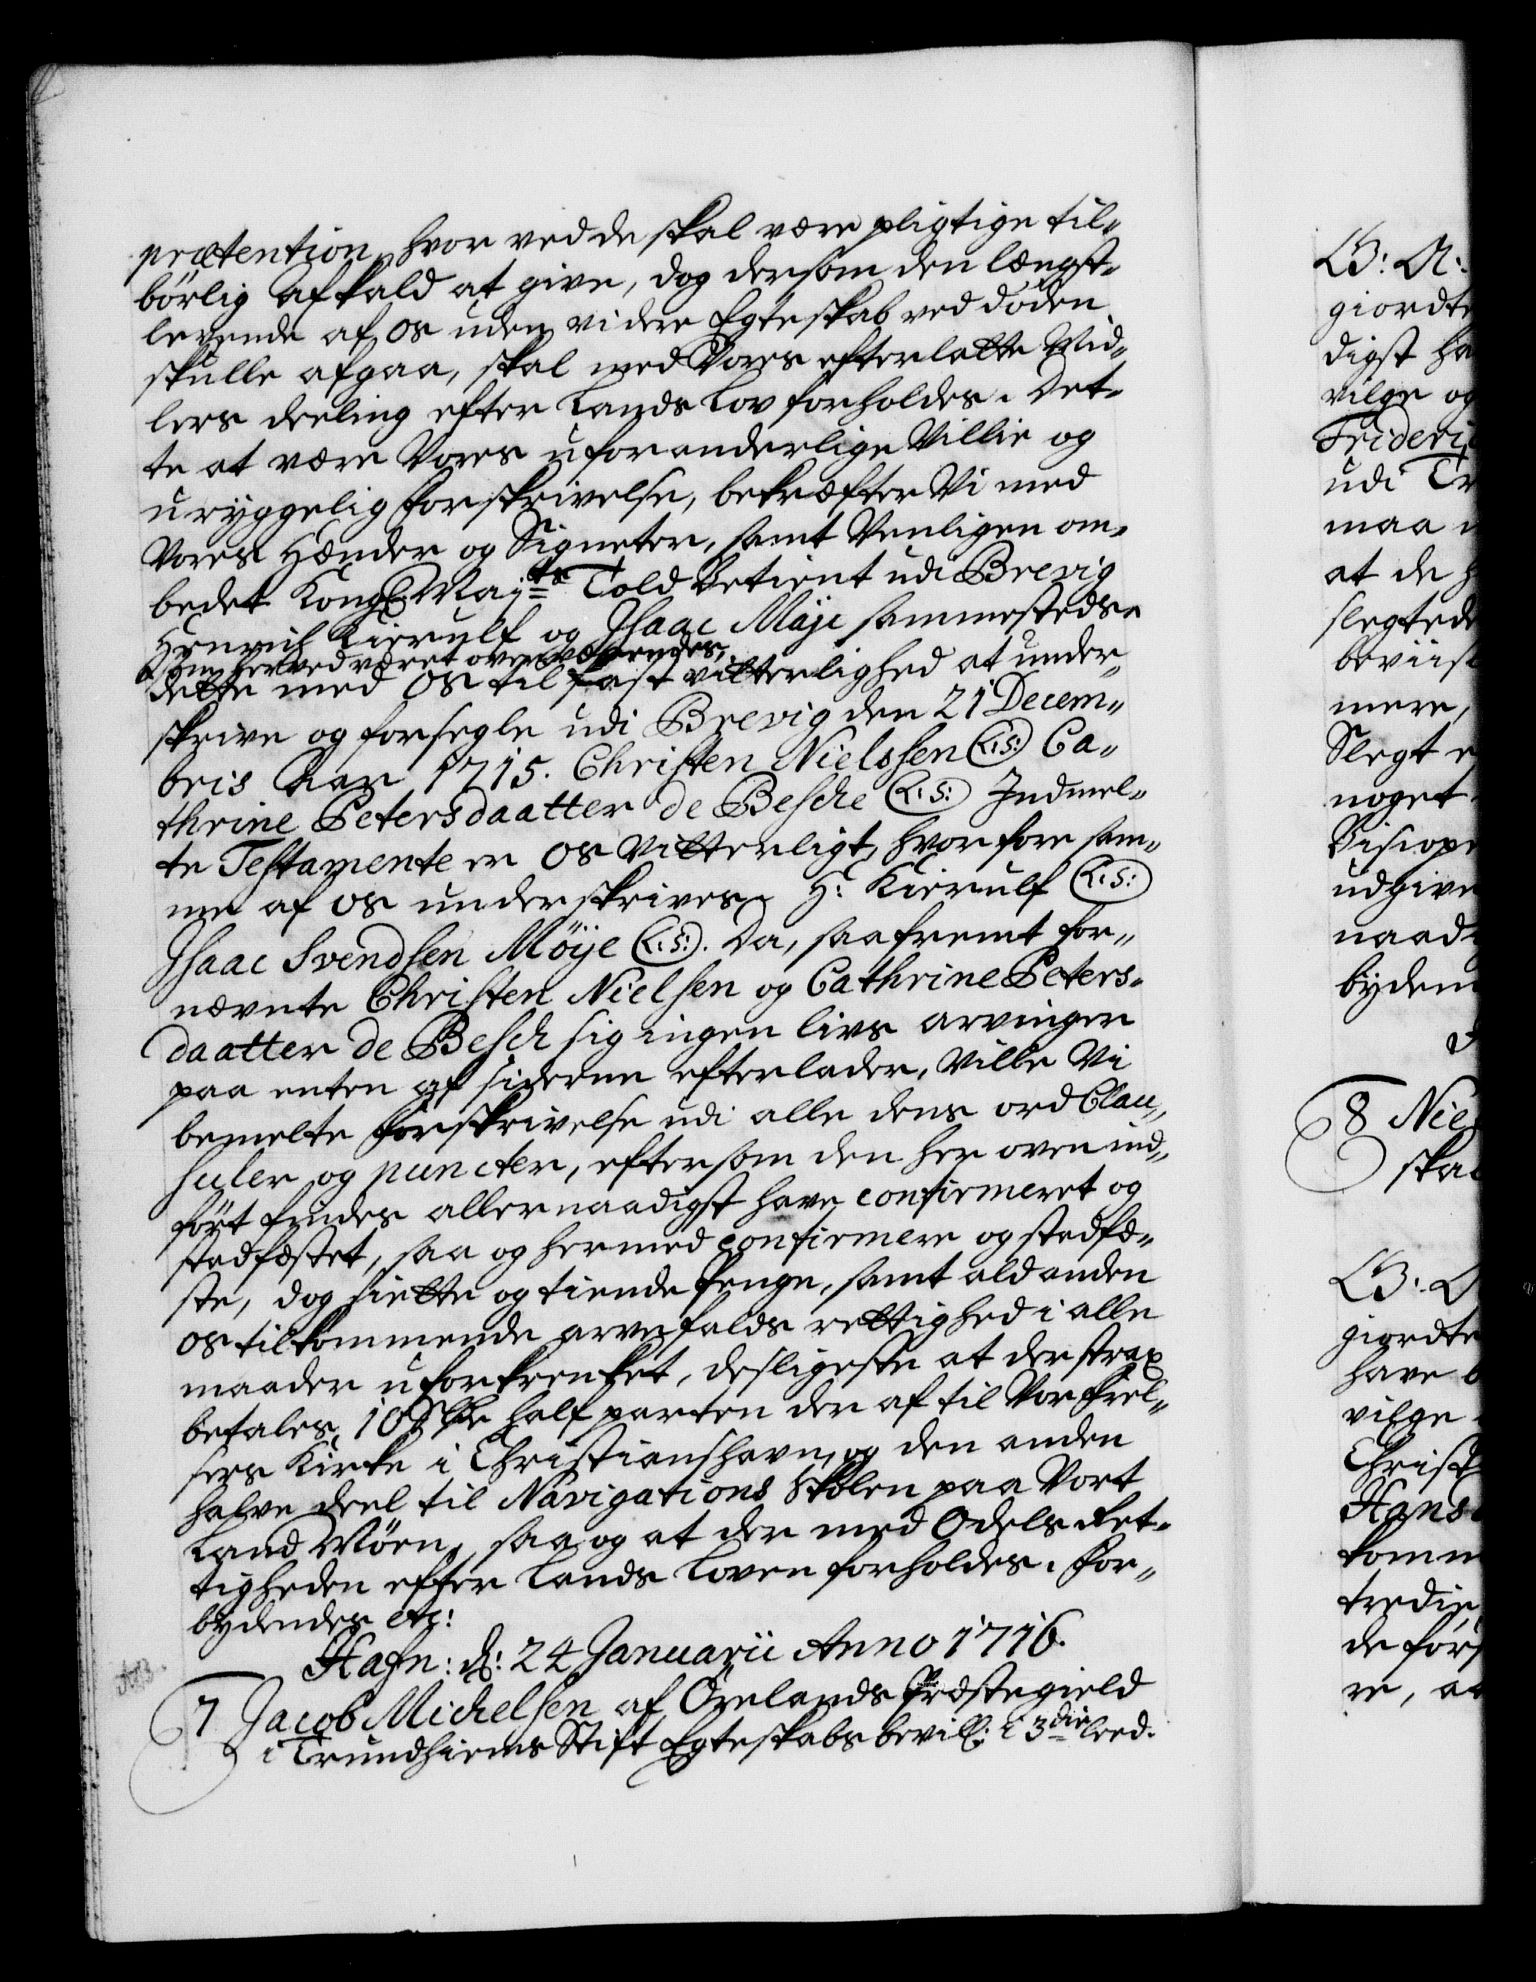 prætention, hvor ved de skal være pligtige til-
börlig afkald at give, dog dersom den længst-
levende af os uden videre Egteskab ved döden
skulle afgaa, skal med Vores efterlatte Mid-
lers deeling efter Lands Lov forholdes. Det-
te at være Vores uforanderlige Villie og
uryggelig forskrivelse, bekræfter Vi med
Vores Hænder og Signeter, samt Venligen om-
bedet Kongl. Maj:ts Told betient udi Brevig
Henrich Kierulf og Isaac Møje sammesteds
som herved været overværendes,
dette med os til fast vitterlighed at under-
skrive og forsegle udi Brevig den 21 Decem-
bris Aar 1715. Christen Nielssen (L:S:) Ca-
thrine Petersdaatter de Besche (L:S:) Indmel-
te Testamente er os vitterligt, hvorfore sam-
me af os underskrives. H: Kierulf (L:S:)
Isaac Svendsen Möije (L:S:). Da, saafremt for-
nævnte Christen Nielsen og Cathrine Peters-
daatter de Besch sig ingen livs arvinger
paa enten af siderne efterlader, Ville Vi
bemelte forskrivelse udi alle dens ord Clau-
suler og puncter, eftersom den her oven ind-
fört findes allernaadigst have confirmeret og
stadfæstet, saa og hermed confirmere og stadfæ-
ste, dog siette og tiende Penge, samt ald anden
os tilkommende arvefalds rettighed i alle
maader uforkrenket, desligeste at der strax
betales, 10 halfparten der af til Vor frel-
sers Kirke i Christianshavn, og den anden
halve deel til Navigations Skolen paa Vort
Land Möen, saa og at der med Odels Ret-
tigheden efter Lands Loven forholdes. For-
bydendes etc:
Hafn: d: 24 Januarii Anno 1716.
7 Jacob Michelsen af Örelands Præstegield
i Trundhiems Stift Egteskabs bevill: i 3die leed.
B: A:
giordte
digst ha
vilge og
Frideri
udi Tr
maa
at de
slegted
beviist
mere,
Slegt e
noget
Bisiope
udgive
naad
bydem
8 Niel
ska
B:
giordte
have
vilge
Christ
Hans
komm
tredie,
de förs
re, a